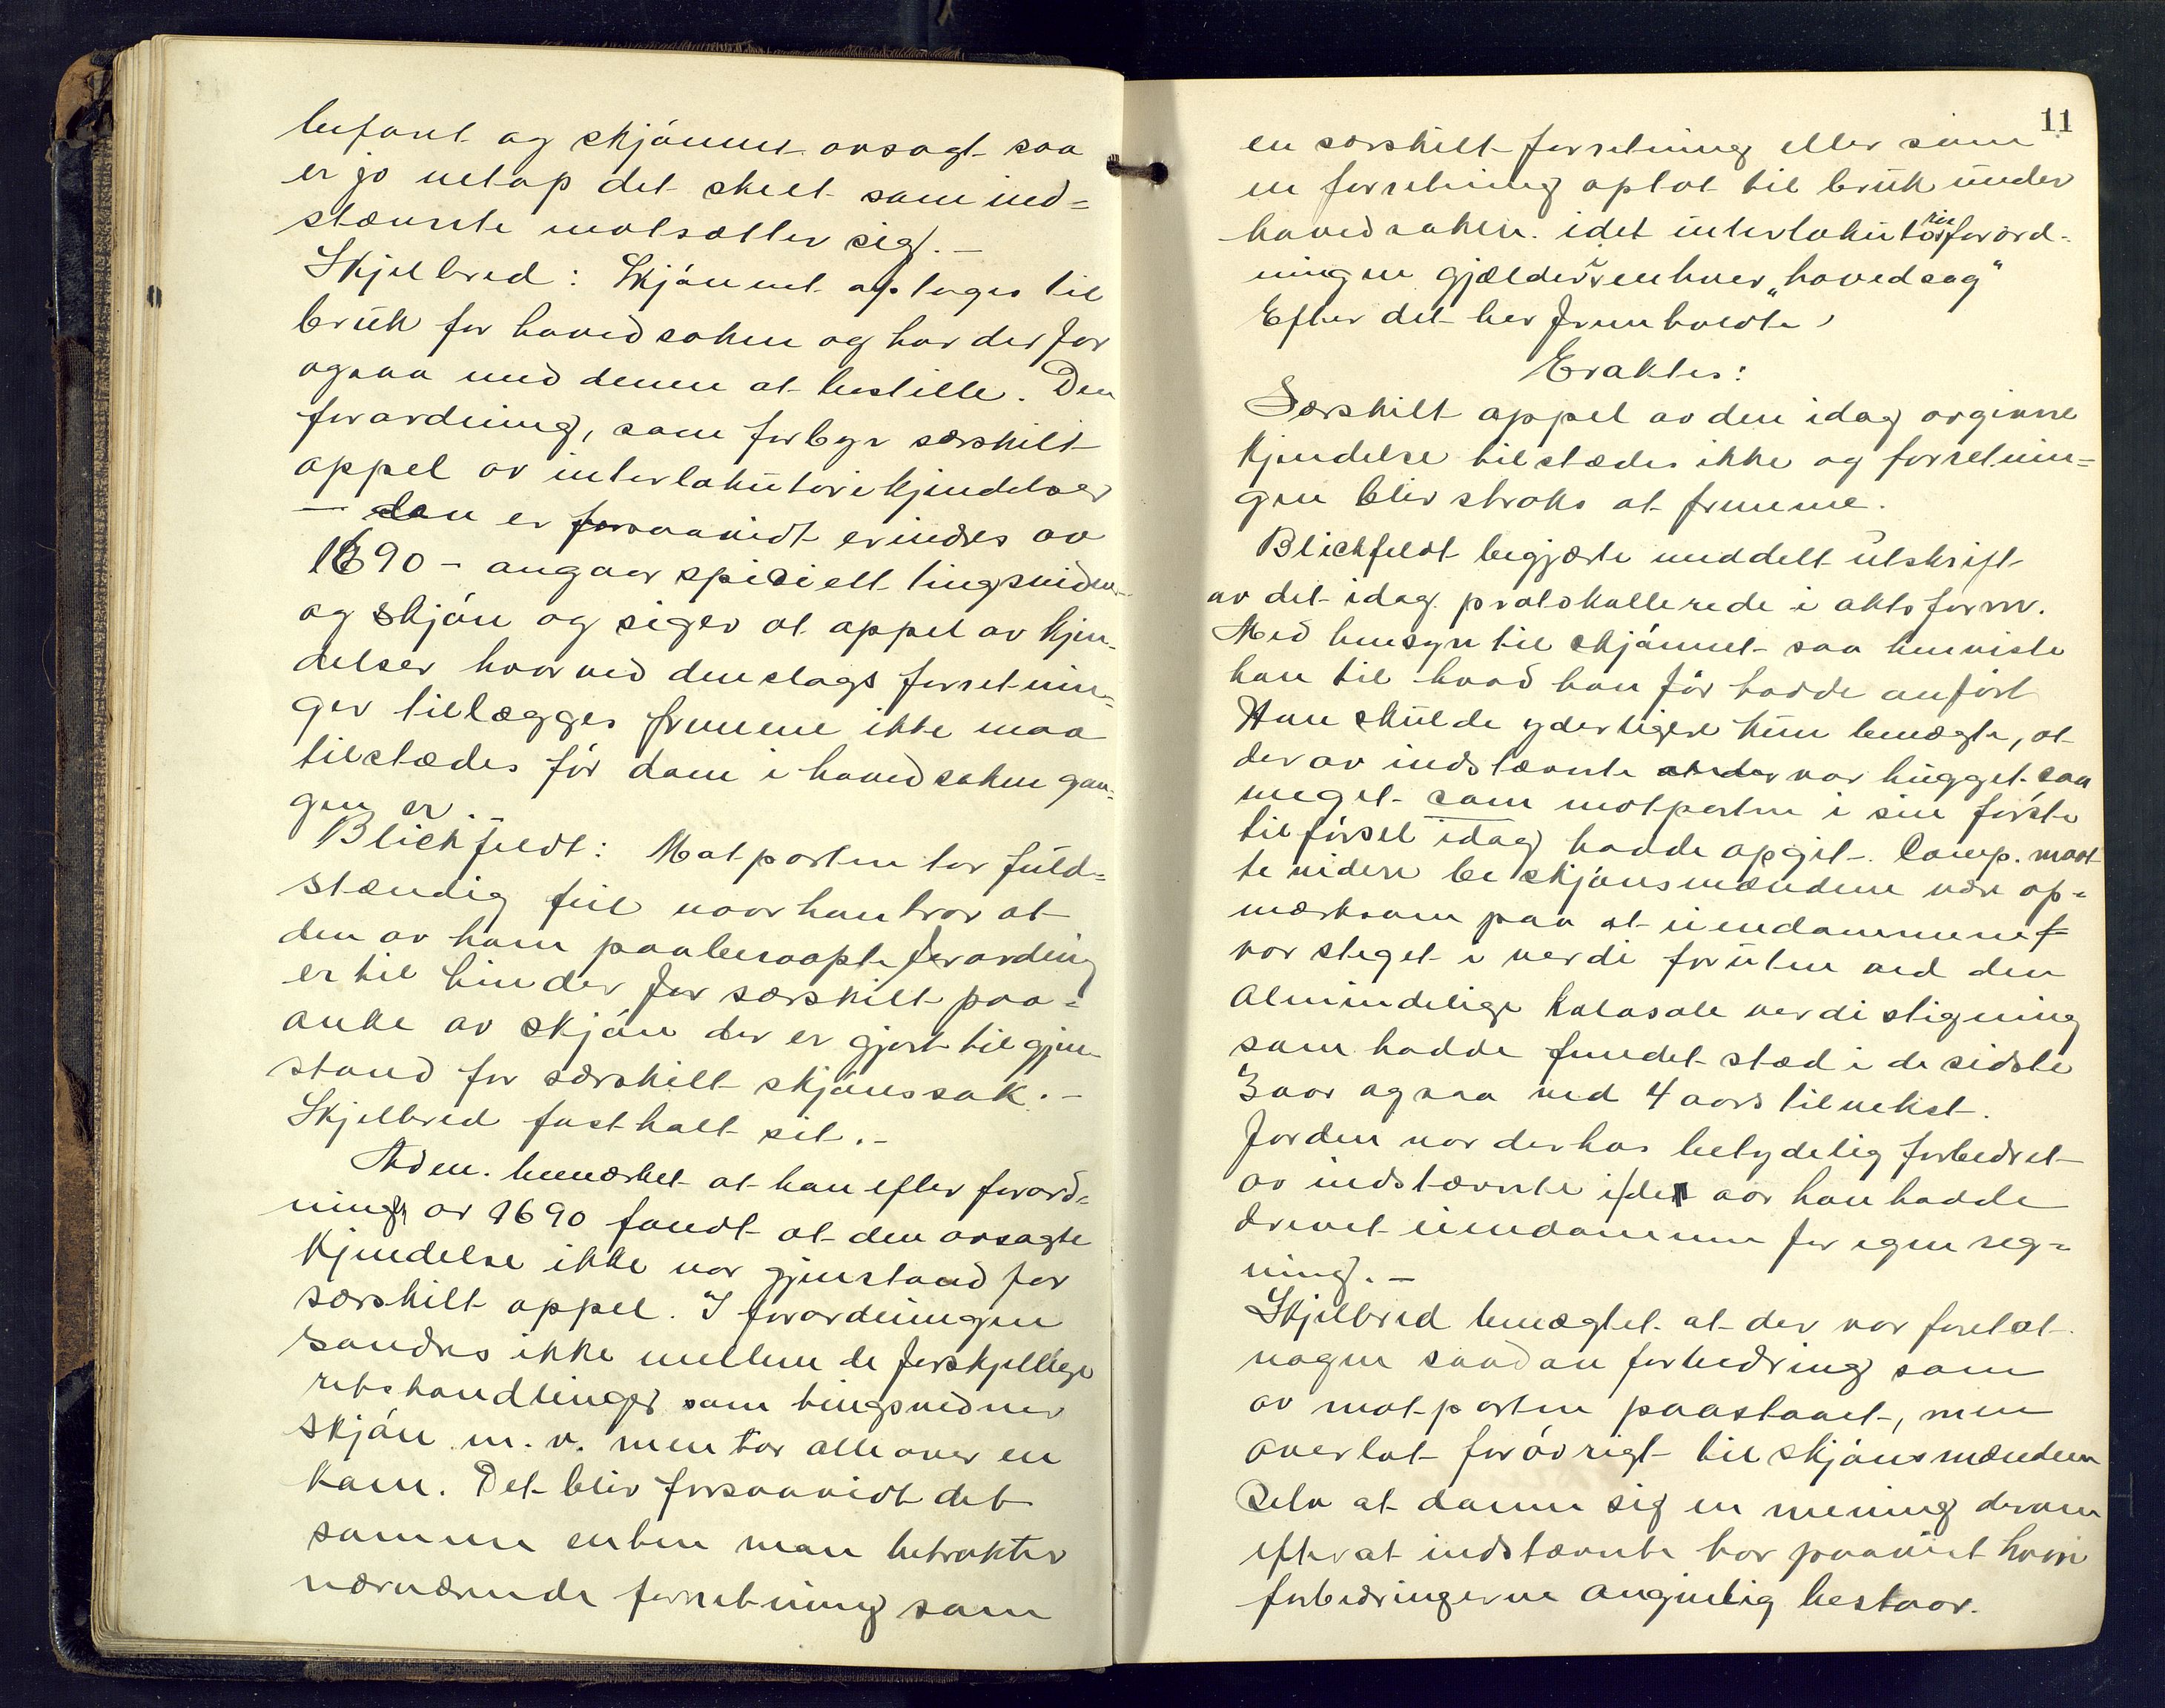 befaret og skjønnet avsagt saa
er jo netop det skeet som ind=
stevnte motsætter sig. –
Skjelbred: Skjønnet optages til
bruk for hovedsaken og har derfor
ogsaa med denne at bestille. Den
forordning, som forbyr særskilt
appel av interlokutorikjendelser
– den er forsaavidt erindres av
1690 – angaar specielt tingsvidner
og skjøn og siger at appel av kjen-
delser hvorved denslags forretnin=
ger tillægges fremme ikke maa
tilstædes før dom i hovedsaken gan=
gen er.
Blichfeldt: Motparten tar fuld=
stændig feil naar han tror at
den av ham paaberaapte forordning
er til hinder for særskilt paa=
anke av skjøn der er gjort til gjen-
stand for særskilt skjønssak. –
Skjelbred fastholt sit. –
Adm. bemærket at han efter forord=
ningen av 1690 fandt at den avsagte
kjendelse ikke var gjenstand for
særskilt appel. I forordningen
sondres ikke mellem de forskjellige
retshandlinger som tingsvidner
skjøn m. v. men tar alle over en
kam. Det blir forsaavidt det
samme enten man betrakter
nærværende forretning som
11
en særskilt forretning eller som
en forretning optat til bruk under
hovedsaken. idet interlokutorieforord-
ningen gjælder enhver "hovedsag"
Efter det her fremholdte
Eraktes:
Særskilt appel av den idag avgivne
kjendelse tilstædes ikke og forretnin=
gen blir straks at fremme.
Blichfeldt begjærte meddelt utskrift
av det idag protokollerede i aktsform.
Med hensyn til skjønnet saa henviste
han til hvad han før hadde anført
Han skulde yderligere kun benegte, at
der av indstevnte var hugget saa
meget som motparten i sin første
tilførsel idag hadde opgit. Comp. maat
te videre be skjønsmændene være op=
mærksom paa at eiendommene
var steget i verdi foruten ved den
almindelige kolosale verdistigning
som hadde fundet sted i de sidste
3 aar ogsaa ved 4 aars tilvekst.
Jorden var derhos betydelig forbedret
av indstevnte i de aar han hadde
drevet eiendommen for egen reg=
ning. –
Skjelbred benegtet at der var foretat
nogen saadan forbedring som
av motparten paastaaet, men
overlot forøvrigt til skjønsmændene
selv at danne sig en mening derom
efterat indstevnte har paavist hvori
forbedringerne angivelig bestaar.